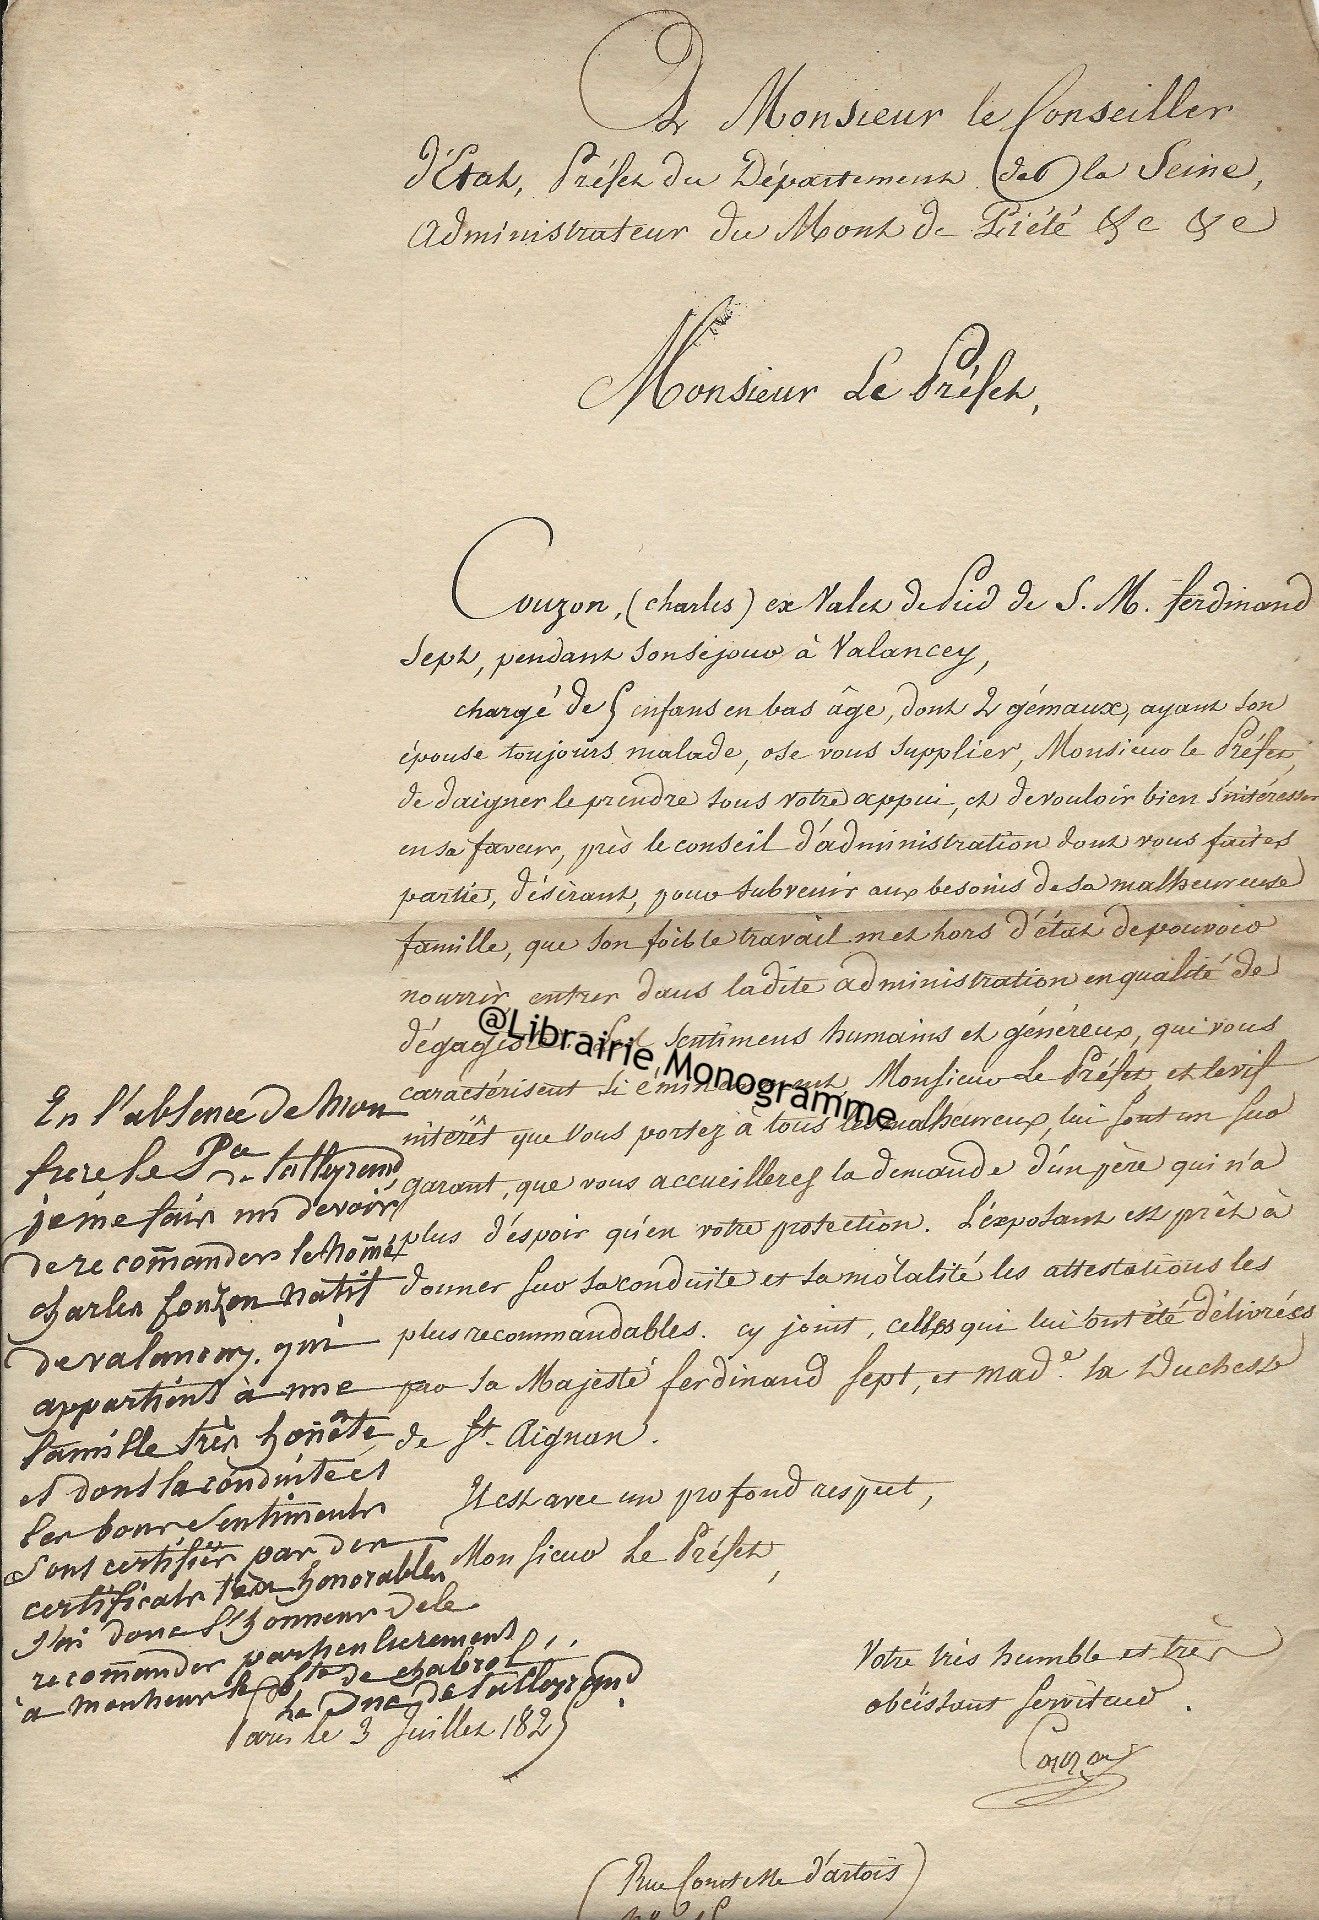 A Monsieur le Conseiller
d'Etat, Préfet du Département de la Seine,
Administrateur du Mont de Piété &c &c
Monsieur Le Préfet,
Couzon, (charles) ex Valet de Pied de S. M. ferdinand
Sept, pendant son séjour à Valancey,
chargé de 5 enfans en bas âge, dont 2 gémaux, ayant son
épouse toujours malade, ose vous supplier, Monsieur le Préfet,
de daigner le prendre sous votre appui, et de vouloir bien s'intéresser
en sa faveur, près le conseil d'administration dont vous faites
partie, désirant, pour subvenir aux besoins de sa malheureuse
famille, que son foible travail met hors d'état de pouvoir
nourrir, entrer dans ladite administration en qualité de
dégagiste. Les sentimens humains et généreux, qui vous
caractérisent si éminemment, Monsieur Le Préfet, et le vif
intérêt que vous portez à tous les malheureux, lui sont un sur
garant, que vous accueillerez la demande d'un père qui n'a
plus d'espoir qu'en votre protection. L'exposant est prêt à
donner sur sa conduite et sa moralité les attestations les
plus recommandables. cy joint, celles qui lui ont été délivrées
par sa Majesté ferdinand sept, et mad.e la Duchesse
de St. Aignan.
Il est avec un profond respect,
Monsieur Le Préfet,
Votre très humble et très
obéissant serviteur.
Couzon
Paris le 3 Juillet 1825
(Rue Comtesse d'artois)
En l'absence de mon
frere le Pce de talleyrand
je me fais un devoir
de recomander le nomé
charles Couzon natif
de valancay. qui
appartient à une
famille très honête
et dont la conduite et
les bons sentiments
sont certifiés par des
certificats très honorables
j'ai donc l'honneur de le
recomander particulierement
à monsieur le Cte de chabrol
Le Duc de talleyrand
@Librairie Monogramme